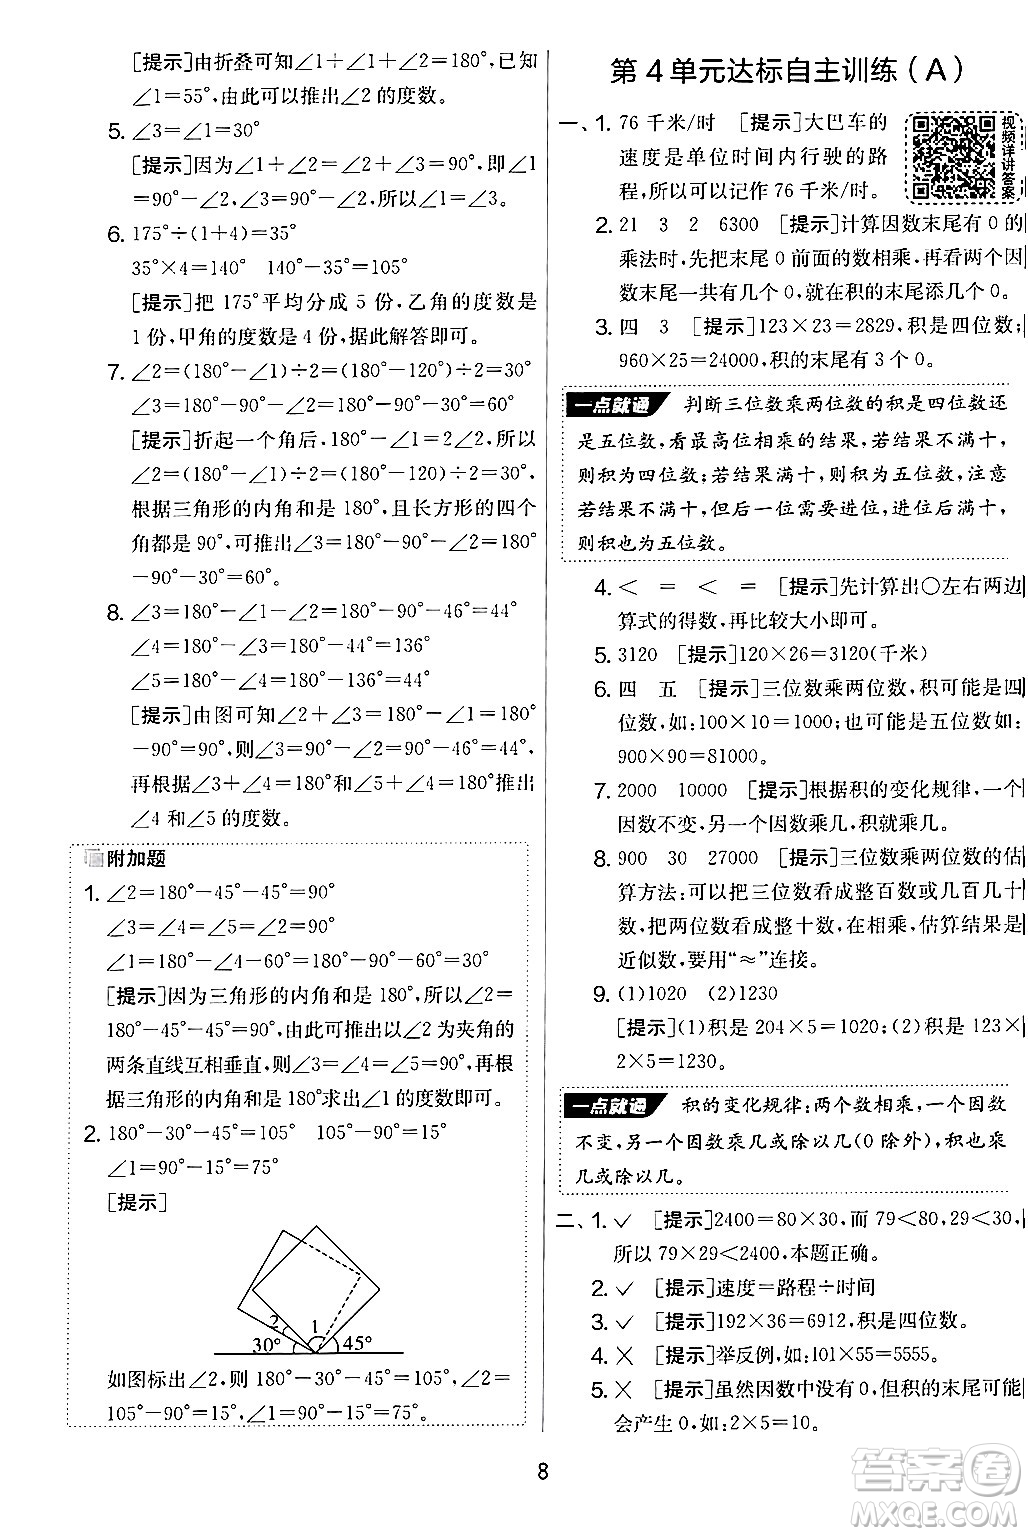 [提示]由折叠可知∠1+∠1+∠2=180°,已知
∠1=55°,由此可以推出∠2的度数。
5. ∠3=∠1=30°
[提示]因为∠1+∠2=∠2+∠3=90°,即∠1
=90°-∠2,∠3=90°-∠2,所以∠1=∠3。
6. 175°÷(1+4)=35°
35°×4=140° 140°-35°=105°
[提示]把 175°平均分成 5 份,乙角的度数是
1 份,甲角的度数是 4 份,据此解答即可。
7. ∠2=(180°-∠1)÷2=(180°-120°)÷2=30°
∠3=180°-90°-∠2=180°-90°-30°=60°
[提示]折起一个角后,180°-∠1=2∠2,所以
∠2=(180°-∠1)÷2=(180°-120°)÷2=30°。
根据三角形的内角和是 180°,且长方形的四个
角都是 90°,可推出∠3=180°-90°-∠2=180°
-90°-30°=60°。
8. ∠3=180°-∠1-∠2=180°-90°-46°=44°
∠4=180°-∠3=180°-44°=136°
∠5=180°-∠4=180°-136°=44°
[提示]由图可知∠2+∠3=180°-∠1=180°
-90°=90°,则∠3=180°-90°-46°=44°,
再根据∠3+∠4=180°和∠5+∠4=180°推出
∠4 和∠5 的度数。
附加题
1. ∠2=180°-45°-45°=90°
∠3=∠4=∠5=∠2=90°
∠1=180°-∠4-60°=180°-90°-60°=30°
[提示]因为三角形的内角和是 180°,所以∠2=
180°-45°-45°=90°,由此可推出以∠2 为夹角的
两条直线互相垂直,则∠3=∠4=∠5=90°,再根
据三角形的内角和是 180°求出∠1 的度数即可。
2. 180°-30°-45°=105° 105°-90°=15°
∠1=90°-15°=75°
[提示]
2 1
30° 45°
如图标出∠2,则 180°-30°-45°=105°,∠2=
105°-90°=15°,∠1=90°-15°=75°。
第 4 单元达标自主训练(A)
一、1. 76 千米/时 [提示]大巴车的
速度是单位时间内行驶的路
程,所以可以记作 76 千米/时。
视频详讲答案
2. 21 3 2 6300 [提示]计算因数末尾有 0 的
乘法时,先把末尾 0 前面的数相乘,再看两个因
数末尾一共有几个 0,就在积的末尾添几个 0。
3. 四 3 [提示]123×23=2829,积是四位数;
960×25=24000,积的末尾有 3 个 0。
一点就通 判断三位数乘两位数的积是四位数还
是五位数,看最高位相乘的结果,若结果不满十,
则积为四位数;若结果满十,则积为五位数,注意
若结果不满十,但后一位需要进位,进位后满十,
则积也为五位数。
4. < = < = [提示]先计算出○左右两边
算式的得数,再比较大小即可。
5. 3120 [提示]120×26=3120(千米)
6. 四 五 [提示]三位数乘两位数,积可能是四
位数,如:100×10=1000,也可能是五位数如:
900×90=81000。
7. 2000 10000 [提示]根据积的变化规律,一个
因数不变,另一个因数乘几,积就乘几。
8. 900 30 27000 [提示]三位数乘两位数的估
算方法:可以把三位数看成整百数或几百几十
数,把两位数看成整十数,在相乘,估算结果是
近似数,要用“≈”连接。
9. (1)1020 (2)1230
[提示](1)积是 204×5=1020;(2)积是 123×
2×5=1230。
一点就通 积的变化规律:两个数相乘,一个因数
不变,另一个因数乘几或除以几(0 除外),积也乘
几或除以几。
二、1. ✓ [提示]2400=80×30,而 79<80,29<30,
所以 79×29<2400,本题正确。
2. ✓ [提示]速度=路程÷时间
3. ✓ [提示]192×36=6912,积是四位数。
4. ✕ [提示]举反例,如:101×55=5555。
5. ✕ [提示]虽然因数中没有 0,但积的末尾可能
会产生 0,如:2×5=10。
8
答案圈
MXQE.COM